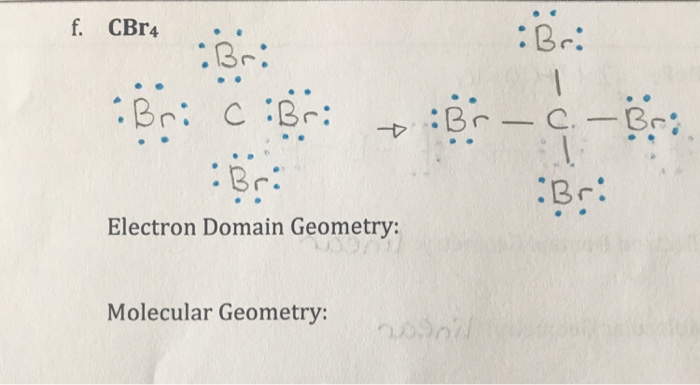 f. CBr4
Br
Br C Br → Br — C — Br
Br
Br
Br
Electron Domain Geometry:
Molecular Geometry:
linear